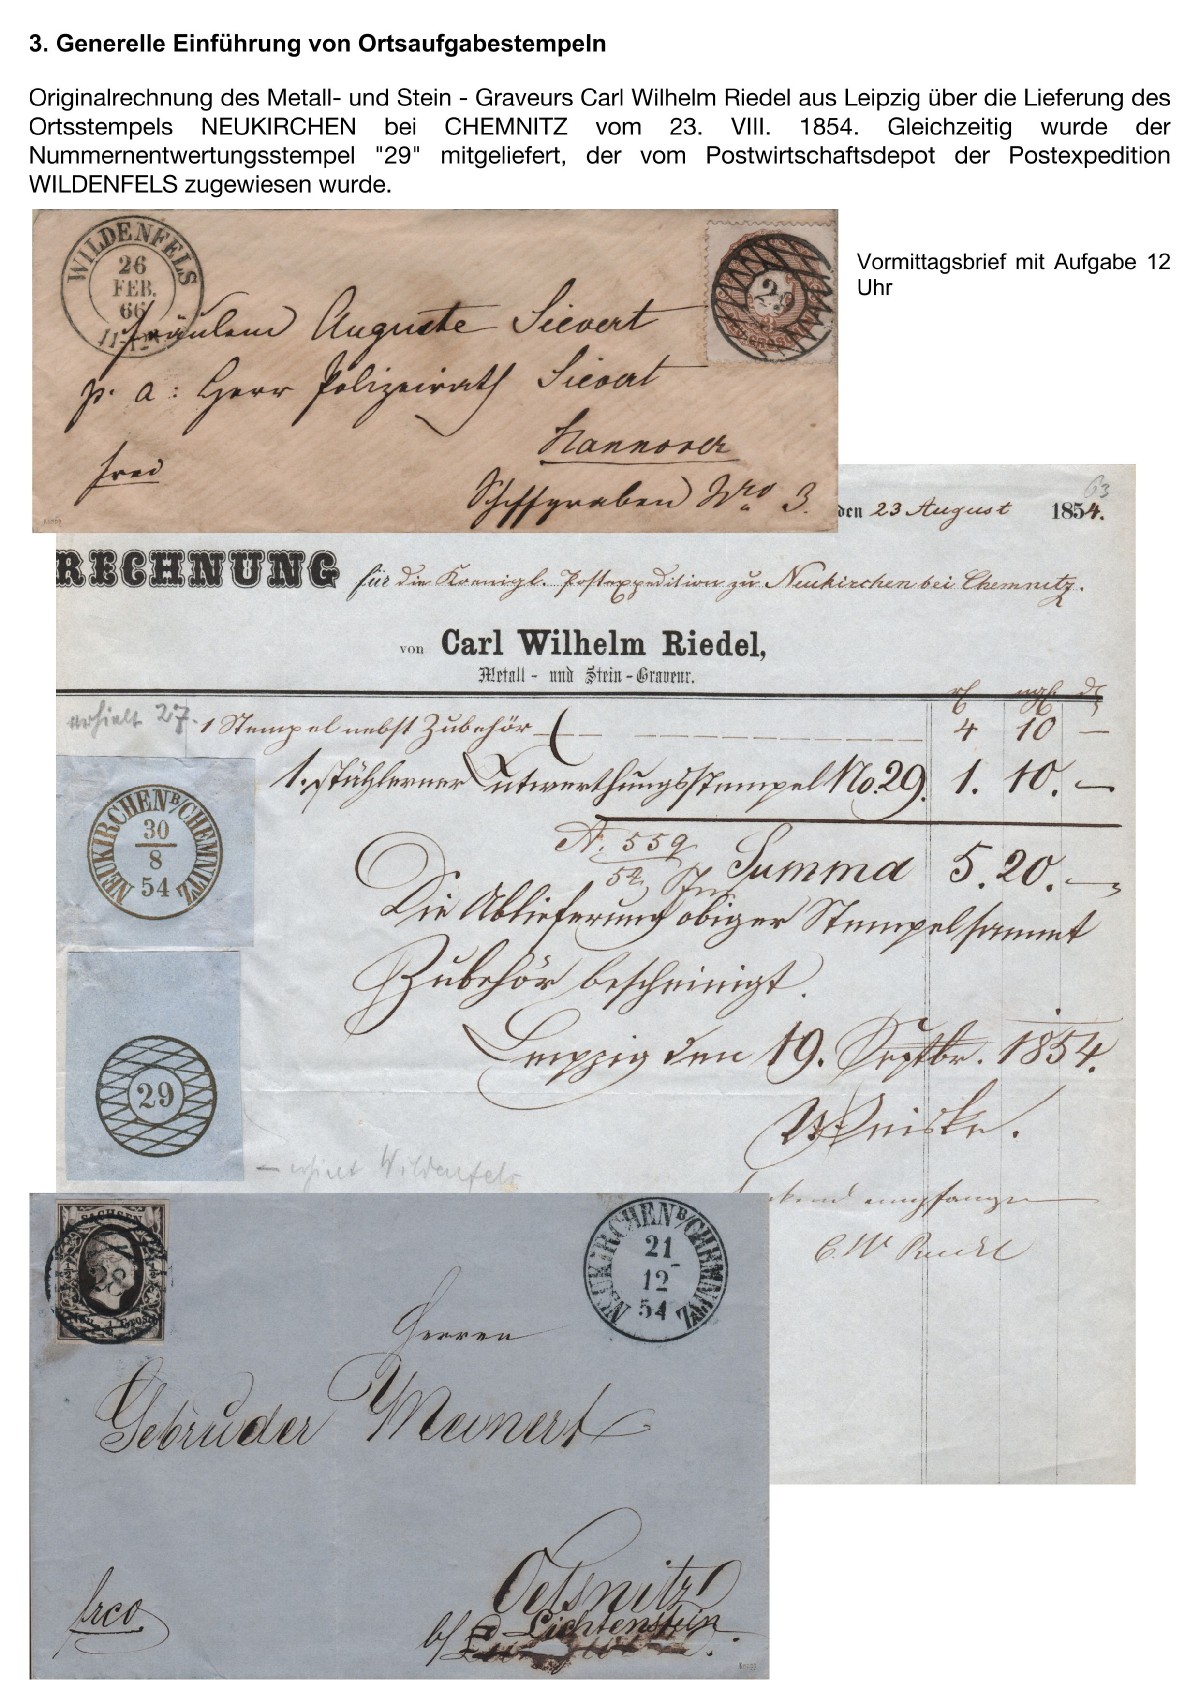 3. Generelle Einführung von Ortsaufgabestempeln
Originalrechnung des Metall- und Stein - Graveurs Carl Wilhelm Riedel aus Leipzig über die Lieferung des
Ortsstempels NEUKIRCHEN bei CHEMNITZ vom 23. VIII. 1854. Gleichzeitig wurde der
Nummernentwertungsstempel "29" mitgeliefert, der vom Postwirtschaftsdepot der Postexpedition
WILDENFELS zugewiesen wurde.
WILDENFELS
26
FEB.
66
Fräulein Auguste Sievert
p. a: Herr Polizeirath Sievert
Hannover
frei
Schiffgraben Nro 3.
Vormittagsbrief mit Aufgabe 12
Uhr
63
den 23 August 1854.
RECHNUNG für die Koenigl. Postexpedition zu Neukirchen bei Chemnitz.
von Carl Wilhelm Riedel,
Metall - und Stein - Graveur.
erhielt 27. 1 Stempel nebst Zubehör 4 10 —
1. stählerner Entwerthungsstempel No. 29. 1. 10. —
NEUKIRCHEN B/CHEMNITZ
30
8
54
N. 559
54
Summa 5. 20. —
Die Ablieferung obiger Stempel sammt
Zubehör bescheinigt.
Leipzig den 19. Septbr. 1854.
29
— erhielt Wildenfels
empfangen
C. W. Riedel
SACHSEN
NEUKIRCHEN B/CHEMNITZ
21
12
54
Herren
Gebrüder Meinert
Oelsnitz
b/ Lichtenstein.
frco